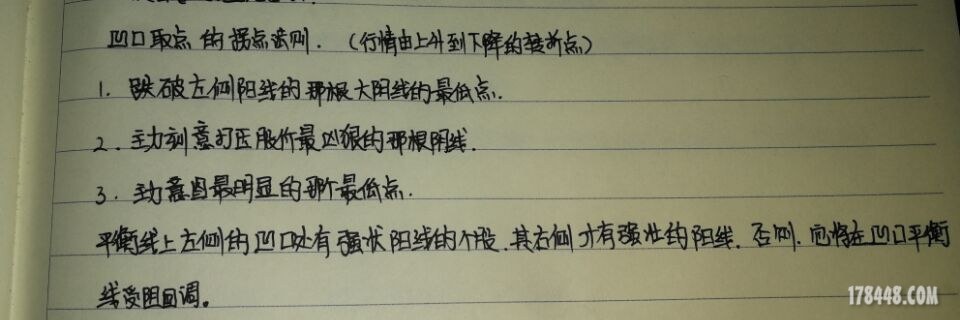 凹口取点的拐点法则.（行情由上升到下降的转折点）
1. 跌破左侧阳线的那根大阴线的最低点.
2. 主力刻意打压股价最凶狠的那根阴线.
3. 主力意图最明显的那个最低点.
平衡线上左侧的凹口处有强状阳线的个股.其右侧才有强壮的阳线.否则.它将在凹口平衡
线受阻回调。
178448.COM